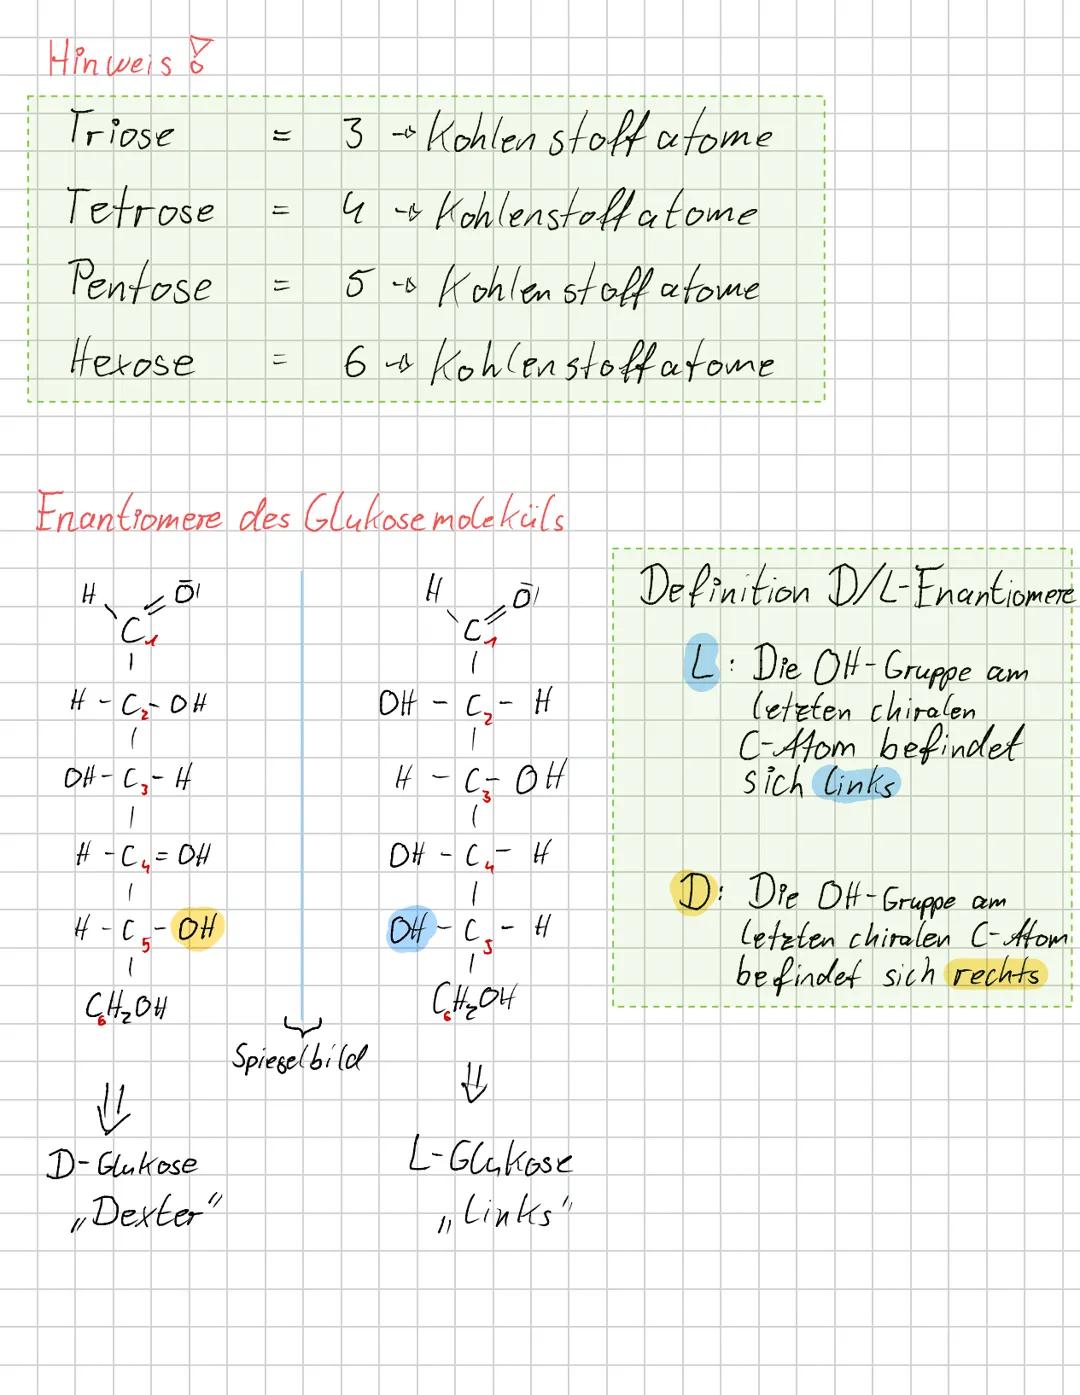 Hinweis!
Triose = 3 → Kohlenstoffatome
Tetrose = 4 → Kohlenstoffatome
Pentose = 5 → Kohlenstoffatome
Hexose = 6 → Kohlenstoffatome
Enantiomere des Glukosemoleküls
H O|
C1
H - C2 - OH
OH - C3 - H
H - C4 = OH
H - C5 - OH
C6H2OH
D-Glukose
„Dexter"
Spiegelbild
H O|
C1
OH - C2 - H
H - C3 - OH
OH - C4 - H
OH - C5 - H
C6H2OH
L-Glukose
„Links"
Definition D/L-Enantiomere
L: Die OH-Gruppe am
letzten chiralen
C-Atom befindet
sich links
D: Die OH-Gruppe am
letzten chiralen C-Atom
befindet sich rechts